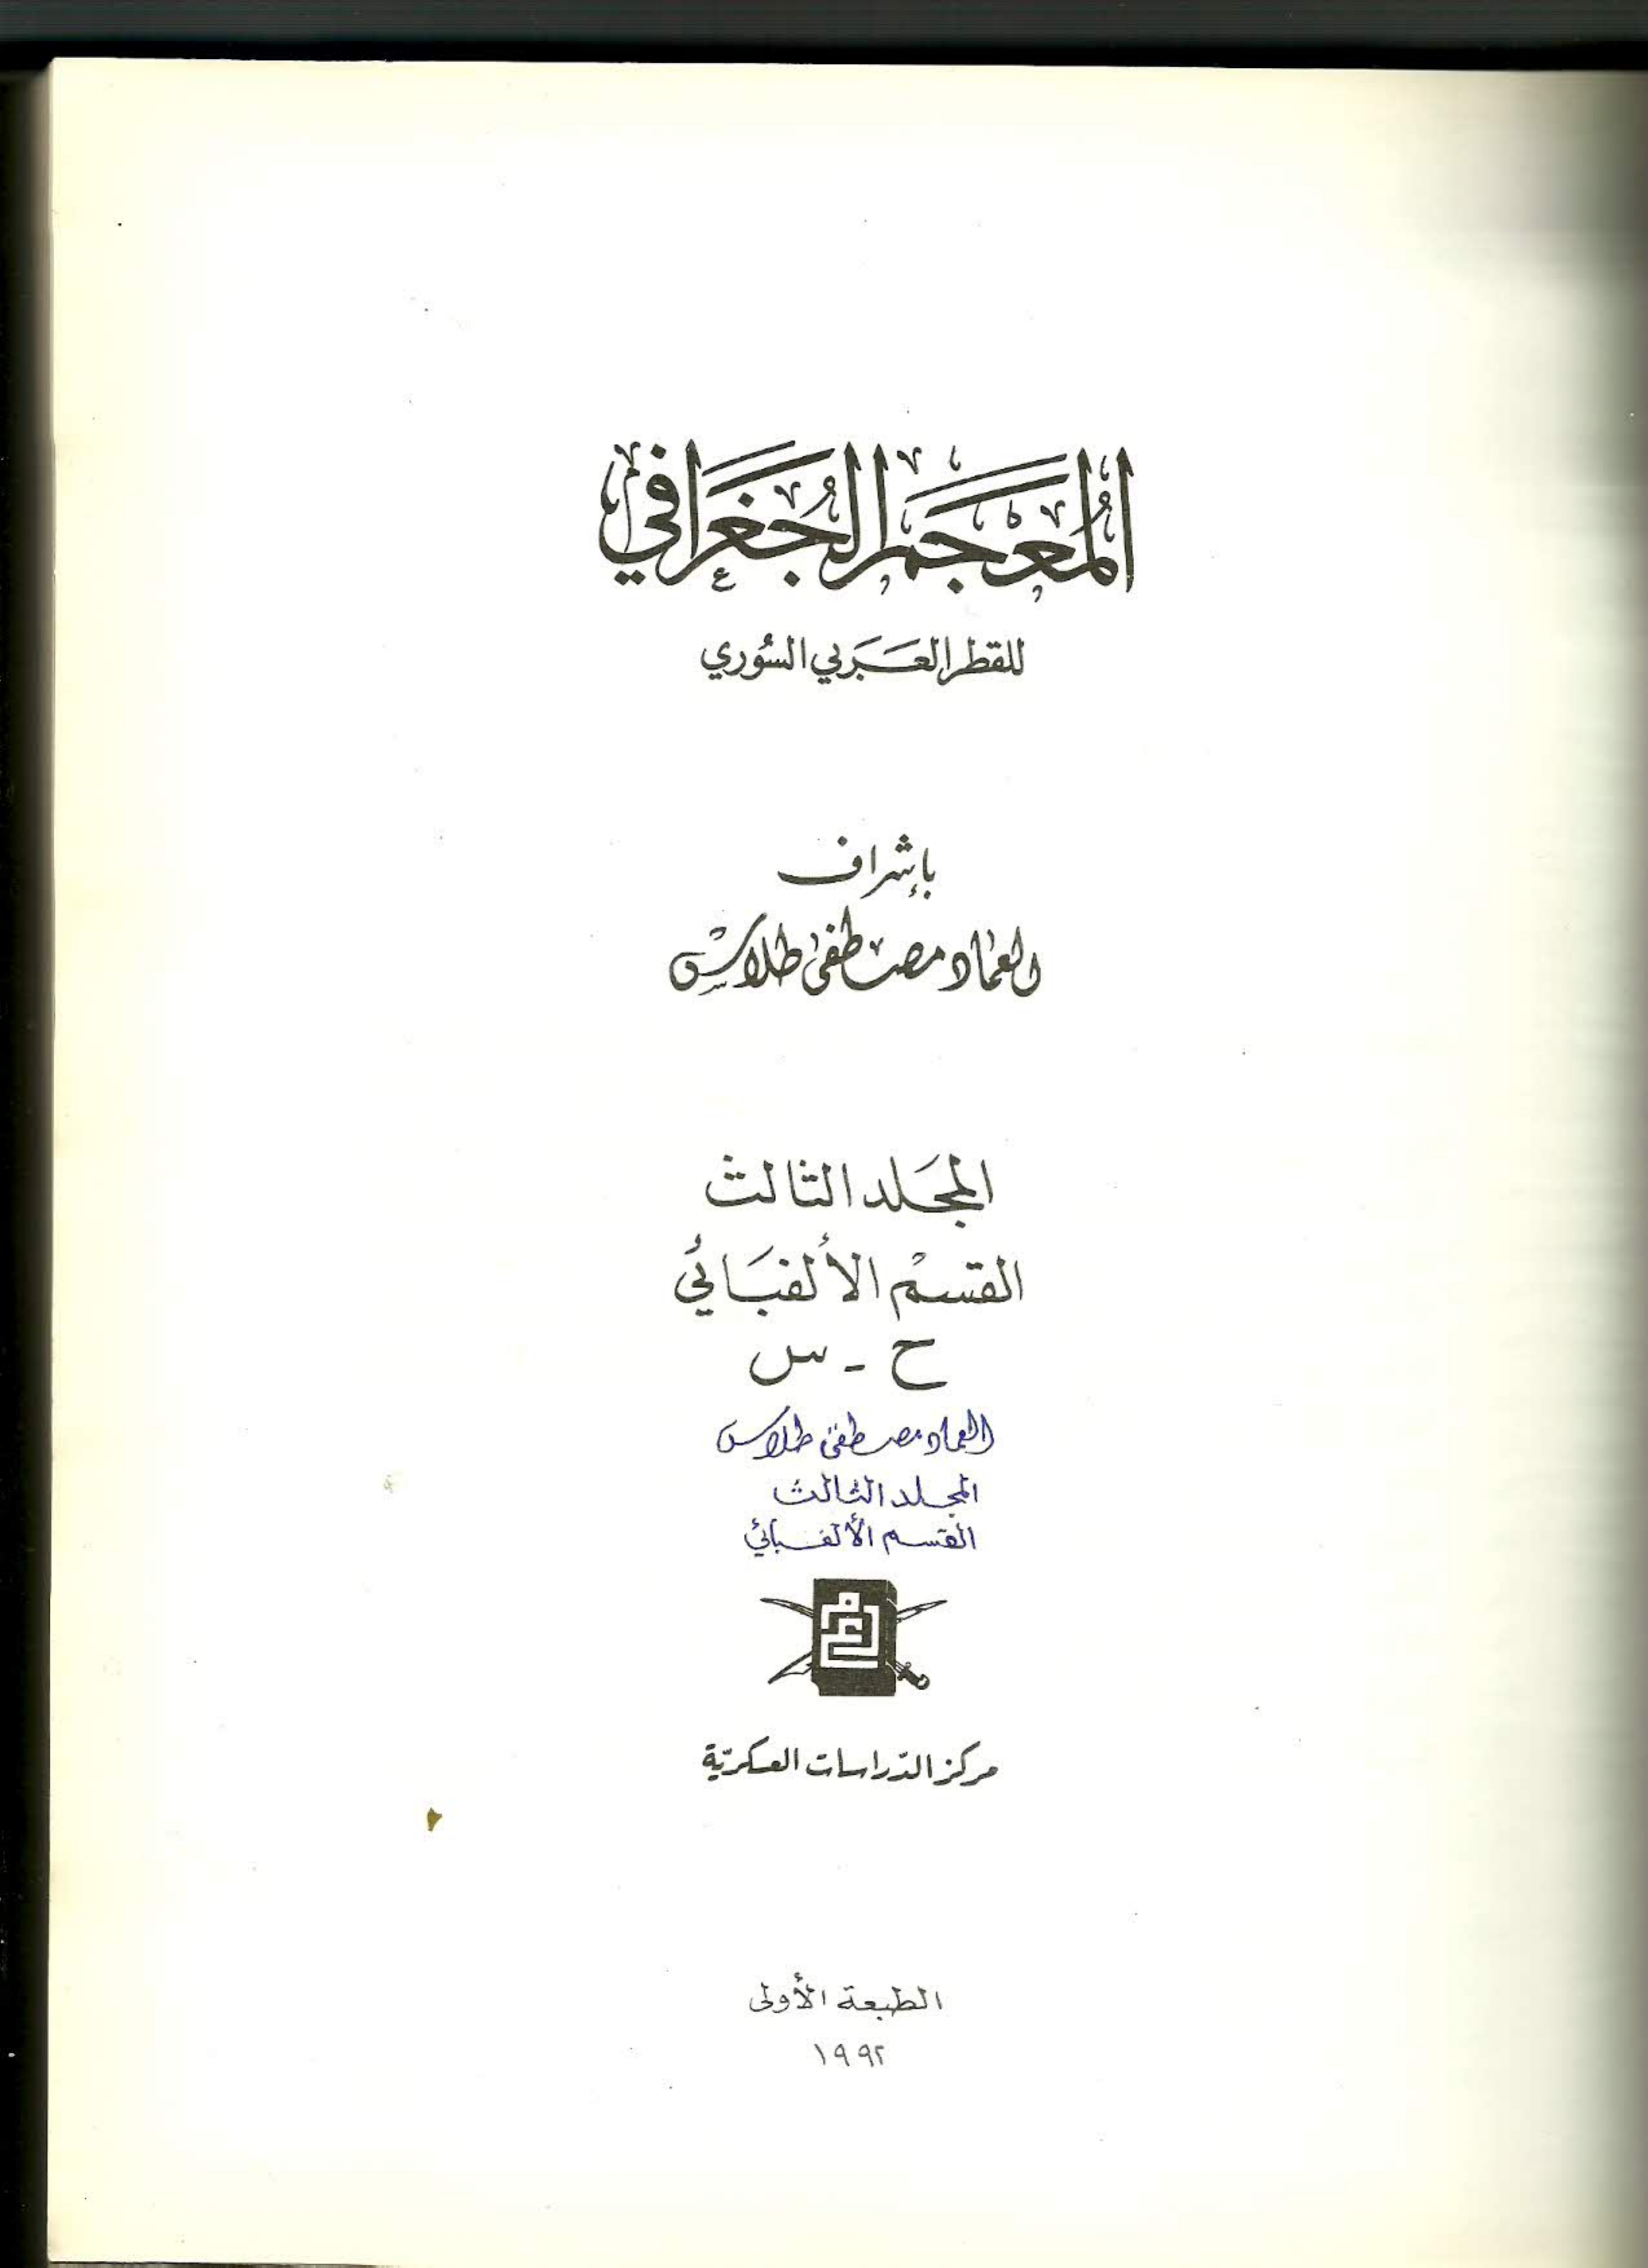 المُعْجَمُ الجُغْرَافيُّ
للقطر العَرَبي السُّوري
بإشراف
العماد مصطفى طلاس
المجَلد الثالث
القسْم الألفبَائي
ح - س
العماد مصطفى طلاس
المجلد الثالث
القسم الألفبائي
مركز الدّراسات العسكريّة
الطبعة الأولى
١٩٩٢